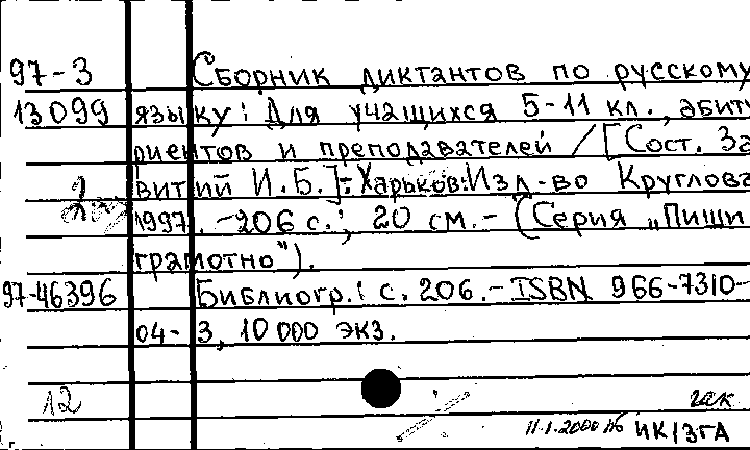 97-3 Сборник диктантов по русскому
13099 языку: Для учащихся 5-11 кл., абиту
риентов и преподавателей / [Сост. За
витий И.Б.]-: Харьков: Изд-во Круглова
1997. -206 с.; 20 см.- (Серия „Пиши
грамотно").
97-46396 Библиогр.: с. 206.- ISBN 966-7310-
04-3, 10 000 экз.
12 гак
11.1.2000 ИК/ЗГА